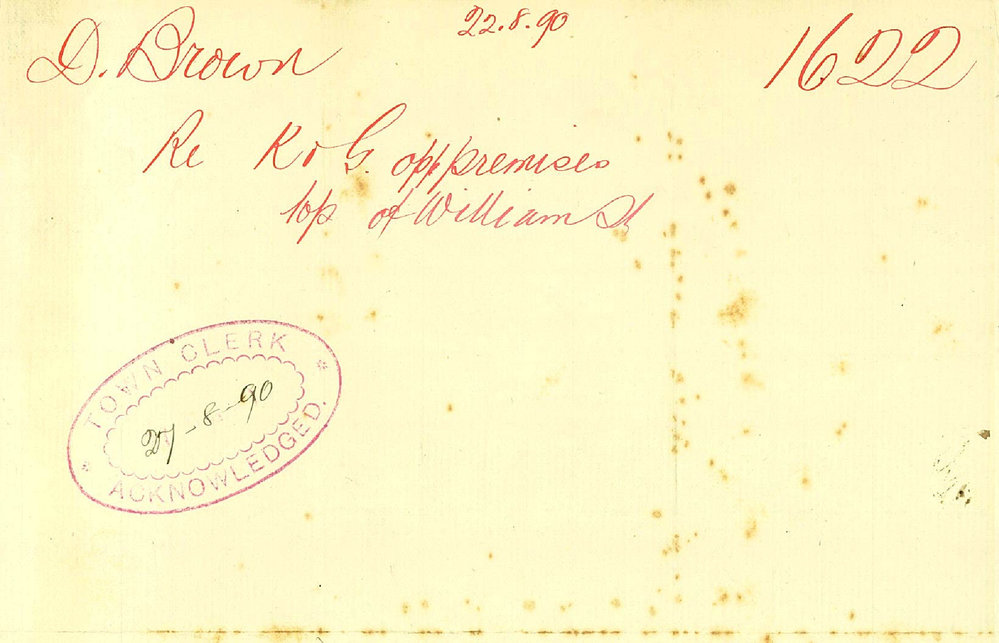 22.8.90
D. Brown 1622
Re K & G. opp premises
top of William St
TOWN CLERK
27-8-90
ACKNOWLEDGED.